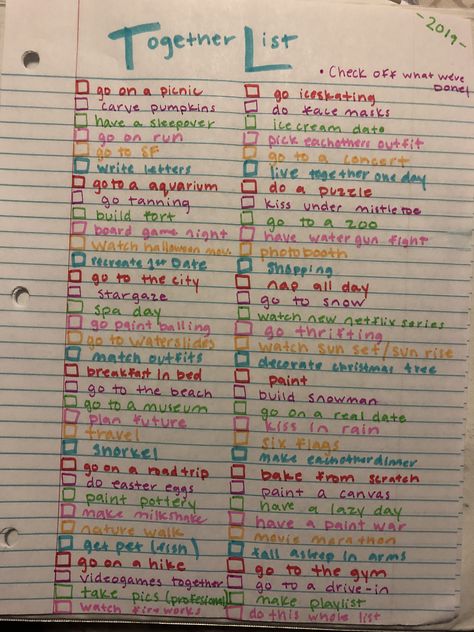 -2019-
Together List
• Check off what we've
Done!
go on a picnic
carve pumpkins
have a sleepover
go on run
go to SF
write letters
go to a aquarium
go tanning
build fort
board game night
watch halloween mov.
recreate 1st Date
go to the city
stargaze
spa day
go paint balling
go to waterslides
match outfits
breakfast in bed
go to the beach
go to a museum
plan future
travel
snorkel
go on a road trip
do easter eggs
paint pottery
make milkshake
nature walk
get pet (fish)
go on a hike
videogames together
take pics (profesional)
watch fireworks
go iceskating
do face masks
ice cream date
pick eachothers outfit
go to a concert
live together one day
do a puzzle
kiss under mistletoe
go to a zoo
have water gun fight
photobooth
shopping
nap all day
go to snow
watch new netflix series
go thrifting
watch sun set/sun rise
decorate christmas tree
paint
build snowman
go on a real date
kiss in rain
six flags
make eachother dinner
bake from scratch
paint a canvas
have a lazy day
have a paint war
movie marathon
fall asleep in arms
go to the gym
go to a drive-in
make playlist
do this whole list